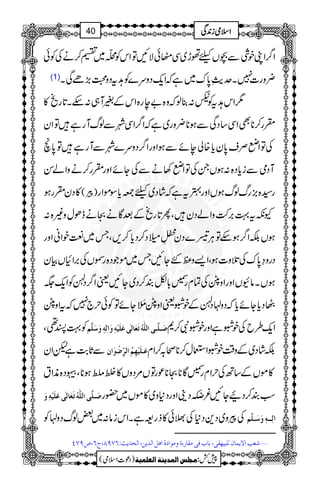 40
اسلامی زندگی
اگر اپنی خوشی سے بچوں کیلئے تھوڑی سی مٹھائی لائیں تو اس کو محلّہ میں تقسیم کرنے کی کوئی
ضرورت نہیں۔ حدیث پاک میں ہے کہ ایک دوسرے کو ہدیہ دو محبت بڑھے گی۔(1)
مگر اس ہدیہ کو ٹیکس نہ بنالو کہ وہ بے چارہ اس کے بغیر آہی نہ سکے۔ تاریخ کا
مقرر کرنا بھی اسی سادگی سے ہونا ضروری ہے کہ اگر اسی شہر سے لوگ آرہے ہیں تو ان
کی تواضع صرف پان یا خالی چائے سے ہو اور اگر دوسرے شہر سے آرہے ہیں تو پانچ
آدمی سے زیادہ نہ ہوں جن کی تواضع کھانے سے کی جائے اور مقرر کرنے والے سن
رسیدہ بزرگ لوگ ہوں اور بہتر یہ ہے کہ شادی کیلئے جمعہ یا سوموار (پیر) کا دن مقرر ہو
کیونکہ یہ بہت برکت والے دن ہیں، پھر تاریخ کے بعد گانے بجانے ڈھول وغیرہ نہ
ہوں بلکہ اگر ہو سکے تو ہر تیسرے دن محفلِ میلاد کردیا کریں، جس میں نعت خوانی اور
درود پاک کی تلاوت ہو، ایسے وعظ کئے جائیں جس میں موجودہ رسموں کی برائیاں بیان
ہوں۔ مائیوں اور اپٹن کی تمام رسمیں بالکل بند کردی جائیں یعنی اگر دلہن کو ایک جگہ
بٹھا دیا جائے یا کہ دولہا دلہن کے خوشبو یعنی اپٹن ملا جائے تو کوئی حرج نہیں کہ اپٹن ایک
طرح کی خوشبو ہے اور خوشبو نبی کریم صَلَّى اللهُ تَعَالٰى عَلَيْهِ وَاٰلِهٖ وَسَلَّم کو بہت پسند تھی،
بلکہ شادی کے وقت خوشبو استعمال کرنا صحابہ کرام عَلَيْهِمُ الرِّضْوَان سے ثابت ہے لیکن ان
کاموں کے ساتھ کی حرام رسمیں گانا بجانا، عورتوں مردوں کا خلط ملط ہونا، بیہودہ مذاق
سب بند کردیئے جائیں غرضیکہ دینی اور دنیاوی کاموں میں حضور صَلَّى اللهُ تَعَالٰى عَلَيْهِ وَ
اٰلِهٖ وَسَلَّم کی پیروی دین و دنیا کی بھلائی کا ذریعہ ہے۔ اس زمانہ میں بعض لوگ دولہا کو
1.....شعب الایمان للبیهقی، باب فی مقاربة وموادة اهل الدین، الحدیث:۸۹۷۶، ج۶، ص۴۷۹
پیش کش: مجلس المدینة العلمیة (دعوتِ اسلامی)